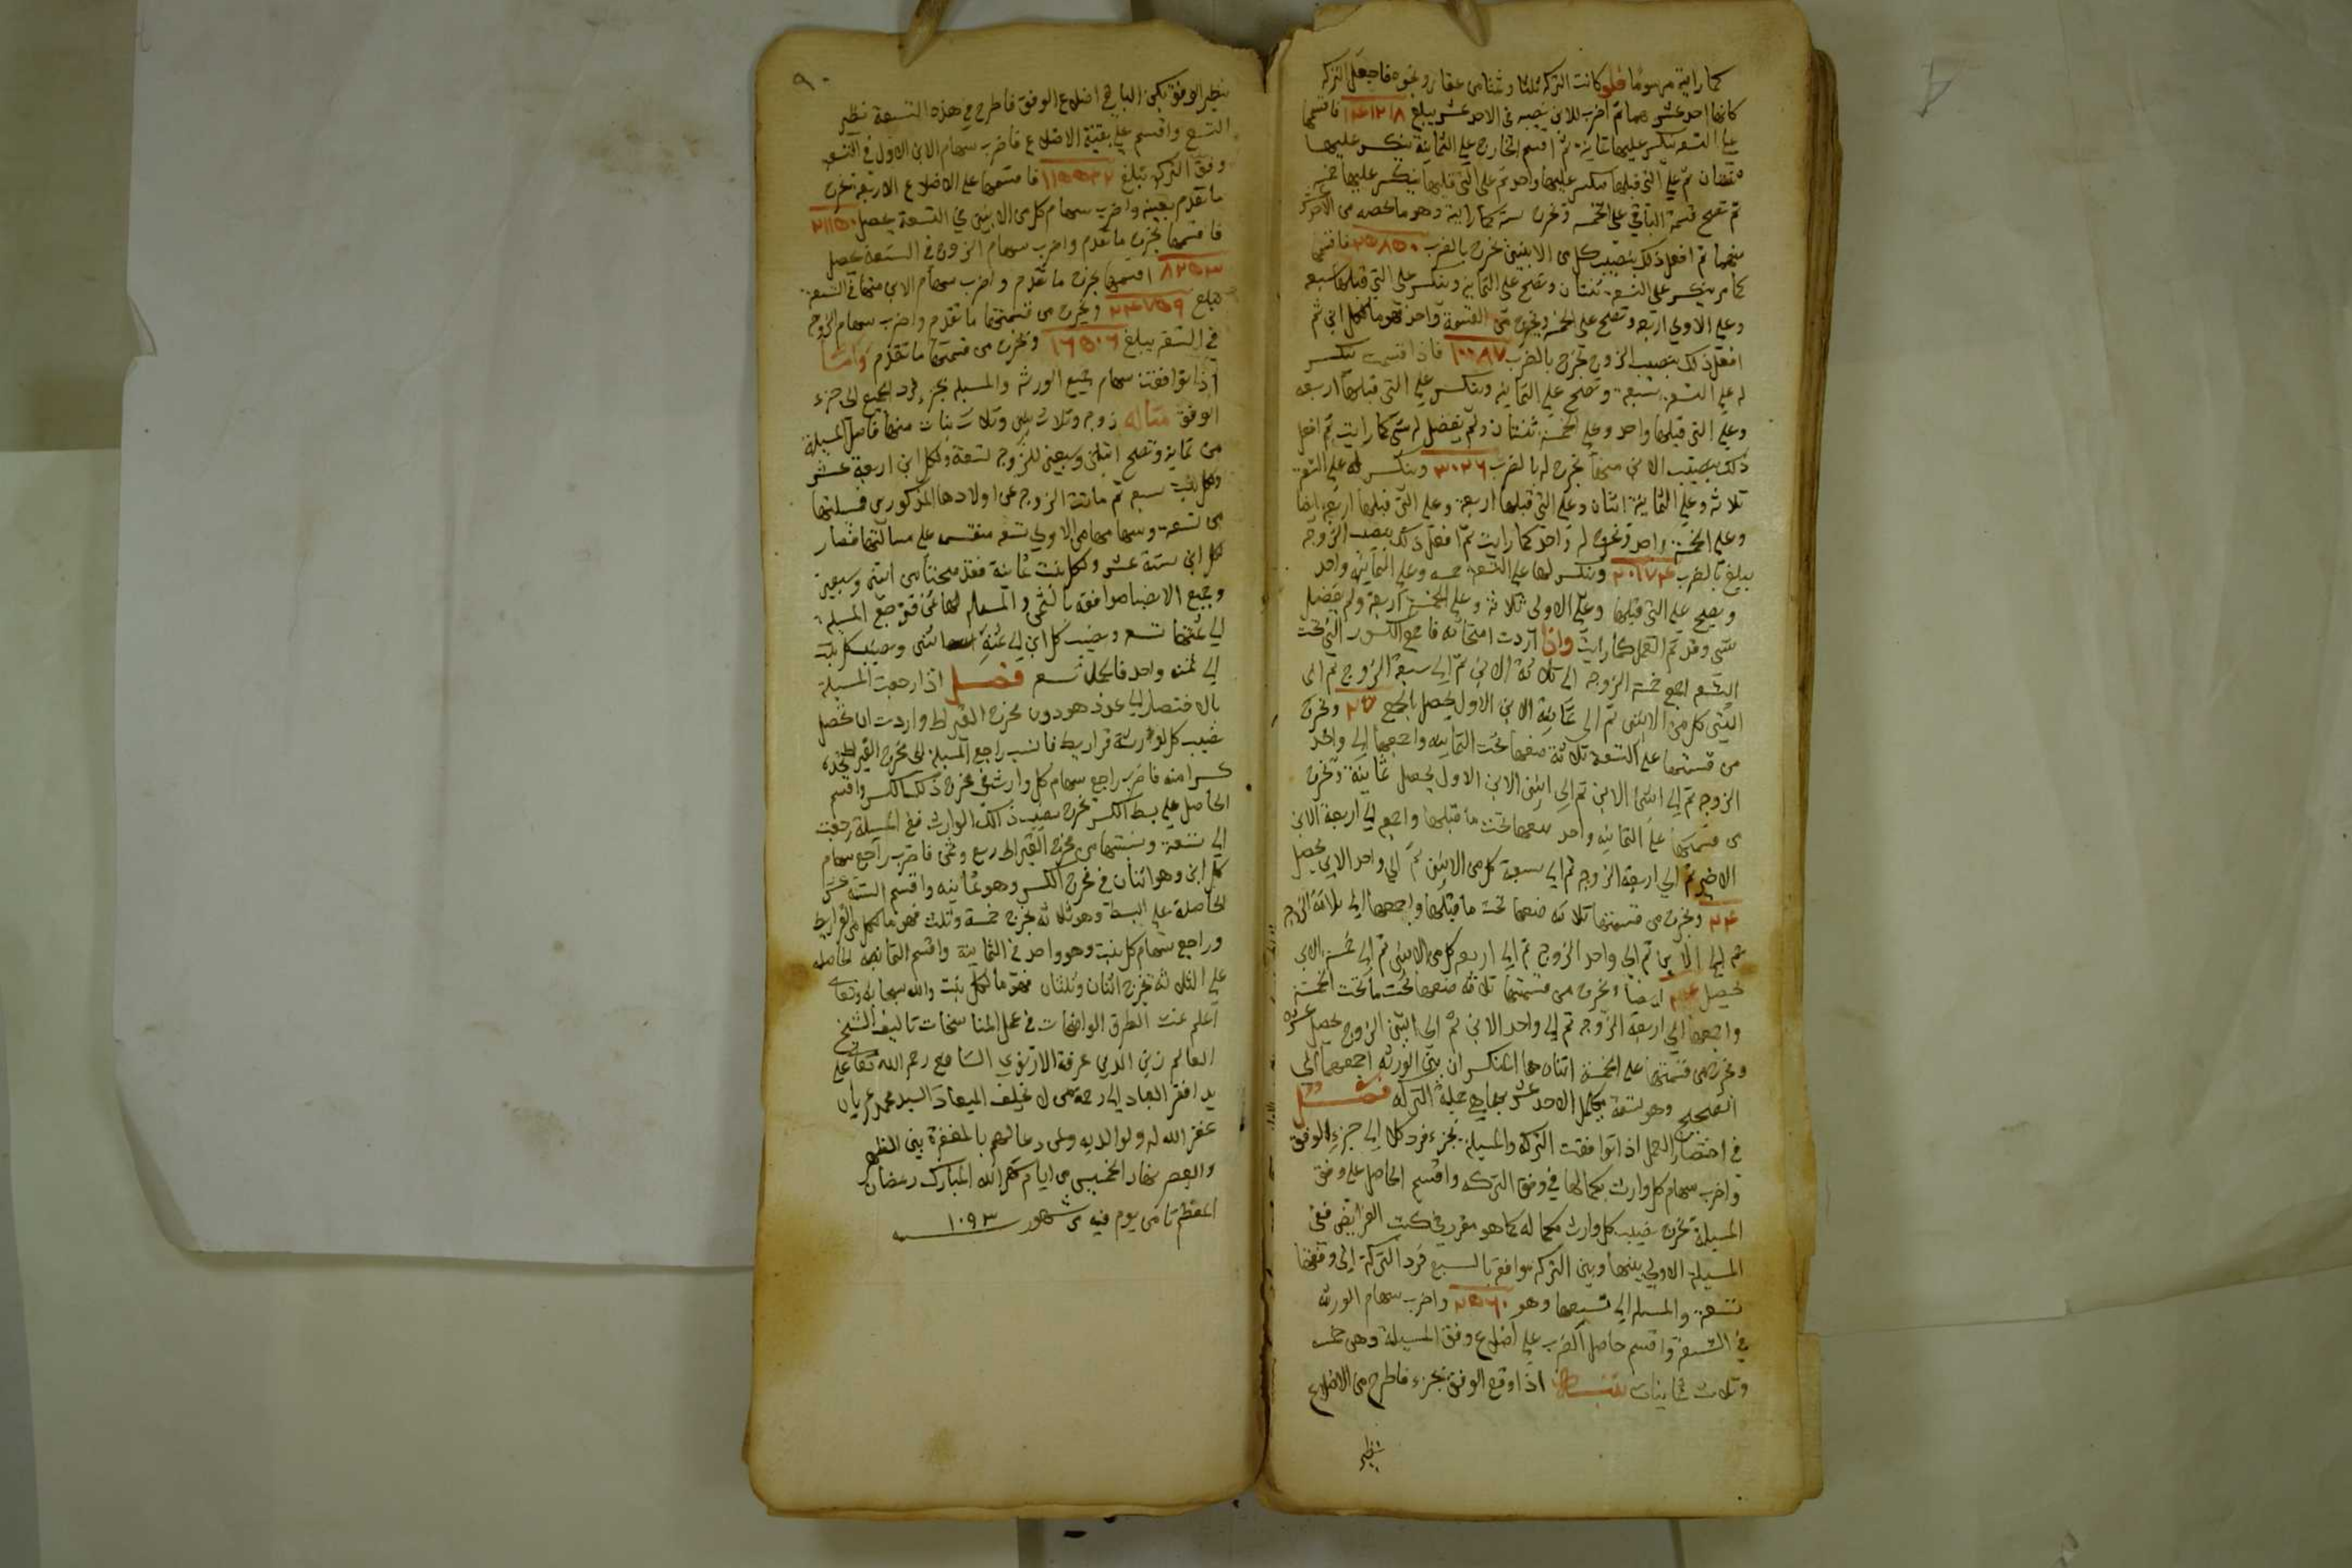 كما رايته مرسوما فلو كانت التركة ثلثا وثمنا من عقار ونحوه فاجعل التركة
كانها احد عشر سهما ثم اضرب للابن نصيبه في الاحد عشر يبلغ فاقسمها
على التسعة ينكسر عليها ثمانية ثم اقسم الخارج على الثمانية ينكسر عليها
ثم على التي قبلها ينكسر عليها واحد ثم على التي قبلها ينكسر عليها خمسة
ثم تصح قسمة الباقي على الخمسة ويخرج ستة كما رايته وهو ما يخصه من الاحد عشر
سهما ثم افعل ذلك بنصيب كل من الابنين يخرج بالضرب ٢٥٨٥٠ فاقسمها
كما مر ينكسر على التسعة ثنتان وتصح على الثمانية وينكسر على التي قبلها سبعة
وعلى الاولى اربعة وتصح على الخمسة ويخرج من القسمة واحد فهو ما لكل ابن ثم
افعل ذلك بنصيب الزوج يخرج بالضرب ١٠٠٨٧ فاذا قسمت ينكسر
له على التسعة سبعة وتصح على الثمانية وينكسر على التي قبلها اربعة
وعلى التي قبلها واحد وعلى الخمسة ثنتان ولم يفضل له شي كما رايت ثم افعل
ذلك بنصيب الابن منها يخرج له بالضرب ٣٠٢٦ وينكسر له على التسعة
ثلاثة وعلى الثمانية اثنان وعلى التي قبلها اربعة وعلى التي قبلها اربعة ايضا
وعلى الخمسة واحد ويخرج له واحد كما رايت ثم افعل ذلك بنصيب الزوجة
يبلغ بالضرب ٢٠١٧٤ وينكسر لها على التسعة خمسة وعلى الثمانية واحد
ويصح على التي قبلها وعلى الاولى ثلاثة وعلى الخمسة اربعة ولم يفضل
شي وقد تم العمل كما رايت واذا اردت امتحانه فاجمع الكسور التي تحت
التسع اجمع خمسة الزوجة الى ثلاثة الابن ثم الى سبعة الزوج ثم الى
اثني كل من الابنين ثم الى ثمانية الابن الاول يحصل بالجمع ٢٧ ويخرج
من قسمتها على التسعة ثلاثة ضعها تحت الثمانية واجمعها الى واحد
الزوجة ثم الى اثني الابن ثم الى اثني الابن الاول يحصل ثمانية ويخرج
من قسمتها على الثمانية واحد ضعها تحت ما قبلها واجمع الى اربعة الابن
الاخير ثم الى اربعة الزوجة ثم الى سبعة كل من الابنين ثم الى واحد الابن يحصل
٢٤ ويخرج من قسمتها ثلاثة ضعها تحت ما قبلها واجمعها الى ثلاثة الزوجة
ثم الى الابن ثم الى واحد الزوج ثم الى اربعة كل من الابنين ثم الى خمسة الابن
يحصل ٢٤ ايضا ويخرج من قسمتها ثلاثة ضعها تحت ما تحت الخمسة
واجمعها الى اربعة الزوجة ثم الى واحد الابن ثم الى اثني الزوج يحصل عشرة
ويخرج من قسمتها على الخمسة اثنان هما المنكسران بين الورثة اجمعهما الى
الصحيح وهو تسعة يكمل الاحد عشر سهما هي جملة التركة فصل
في اختصار العمل اذا توافقت التركة والمسيلة بجزء فرد كلا الى جزء الوفق
واضرب سهام كل وارث بكمالها في وفق التركة واقسم الحاصل على وفق
المسيلة يخرج نصيب كل وارث بكماله كما هو مقرر في كتب الفرايض ففي
المسيلة الاولى بينها وبين التركة موافقة بالسبع فرد التركة الى وفقها
تسعة والمسيلة الى تسيعها وهو ٢٥٦٠ واضرب سهام الورثة
في التسعة واقسم حاصل الضرب على اضلاع وفق المسيلة وهي خمسة
وثلاث ثمانيات اذا وقع الوفق بجزء فاطرح من الاضلاع
نظير
٩٠
نظير الوفق يكن الباقي اضلاع الوفق فاطرح من هذه التسعة نظير
التسع واقسم على بقية الاضلاع فاضرب سهام الابن الاول في التسعة
وفق التركة تبلغ ١١٥٥٣٢ فاقسمها على الاضلاع الاربعة يخرج
ما تقدم بعينه واضرب سهام كل من الابنين في التسعة يحصل ٢١١٥٠
فاقسمها يخرج ما تقدم واضرب سهام الزوج في التسعة يحصل
٨٢٥٣ اقسمها يخرج ما تقدم واضرب سهام الابن منها في التسعة
تبلغ ٢٤٧٥٩ ويخرج من قسمتها ما تقدم واضرب سهام الزوجة
في التسعة يبلغ ١٦٥٠٦ ويخرج من قسمتها ما تقدم واما
اذا توافقت سهام جميع الورثة والمسيلة بجزء فرد الجميع الى جزء
الوفق مثاله زوجة وثلاث بنين وثلاث بنات منها فاصل المسيلة
من ثمانية وتصح من اثنين وسبعين للزوجة تسعة ولكل ابن اربعة عشر
ولكل بنت سبعة ثم ماتت الزوجة عن اولادها المذكورين فمسيلتها
من تسعة وسهامها من الاولى تسعة منقسمة على مسالتها فصار
لكل ابن ستة عشر ولكل بنت ثمانية فقد صحتا من اثنين وسبعين
وجميع الانصبا موافقة بالثمن والمسيلة لها ثمن فترجع المسيلة
الى ثمنها تسعة ونصيب كل ابن الى ثمنه اثنين ونصيب كل بنت
الى ثمنه واحد فالكل تسعة فصل اذا رجعت المسيلة
بالاختصار الى عدد هو دون مخرج القيراط واردت ان تحصل
نصيب كل وارث قراريط فانسب راجع المسيلة الى مخرج القيراط تجده
كسرا منه فاضرب راجع سهام كل وارث في مخرج ذلك الكسر واقسم
الحاصل على بسط الكسر يخرج نصيب ذلك الوارث ففي المسيلة رجعت
الى تسعة ونسبتها من مخرج القيراط ربع وثمن فاضرب راجع سهام
كل ابن وهو اثنان في مخرج الكسر وهو ثمانية واقسم الستة عشر
الحاصلة على البسط وهو ثلاثة يخرج خمسة وثلث فهو ما لكل من القراريط
وراجع سهام كل بنت وهو واحد في الثمانية واقسم الثمانية الحاصلة
على الثلاثة يخرج اثنان وثلثان فهو ما لكل بنت والله سبحانه وتعالى
اعلم تمت الطرق الواضحات في عمل المناسخات تاليف الشيخ
العالم زين الدين عرفة الارموي الشافعي رحمه الله تعالى على
يد افقر العباد الى رحمة من لا يخلف الميعاد السيد محمد عريان
غفر الله له ولوالديه ولمن دعا لهم بالمغفرة بين الظهر
والعصر نهار الخميس من ايام شهر الله المبارك رمضان
المعظم ثامن يوم فيه من شهور سنة ١٠٩٣